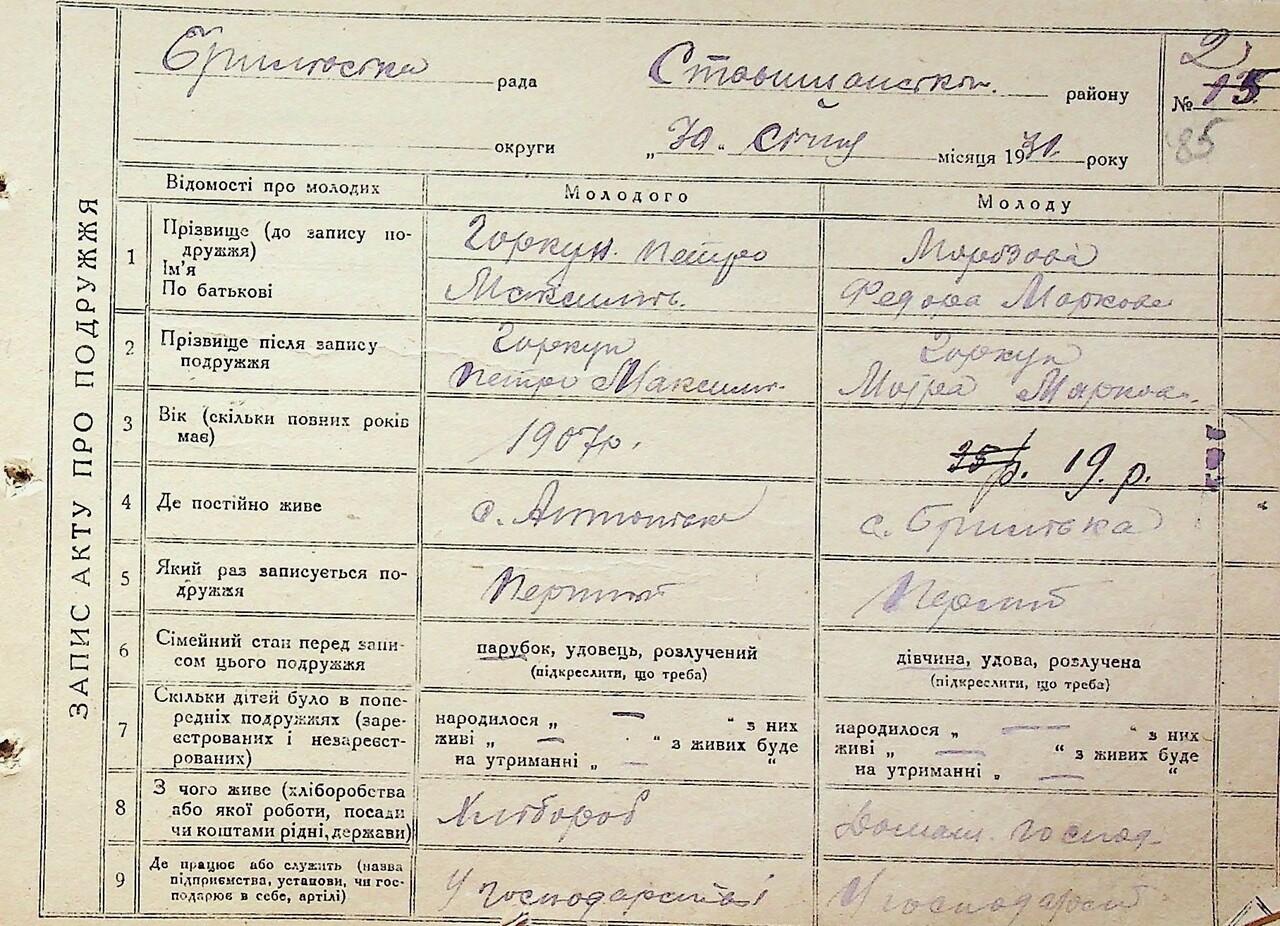 рада Ставищанськ. району № 2
15
85
округи „30. січня місяця 1931. року
ЗАПИС АКТУ ПРО ПОДРУЖЖЯ
Відомості про молодих Молодого Молоду
1 Прізвище (до запису по-
дружжя)
Ім'я
По батькові
Горкун. Петро
Максимів.
Морозова
Федора Маркова
2 Прізвище після запису
подружжя
Горкун
Петро Максим.
Горкун
Мотра Марков.
3 Вік (скільки повних років
має)
1907р.
19. р.
4 Де постійно живе
с. Антонівка
с. Бриліівка
5 Який раз записується по-
дружжя
Перший
Перший
6 Сімейний стан перед запи-
сом цього подружжя
парубок, удовець, розлучений
(підкреслити, що треба)
дівчина, удова, розлучена
(підкреслити, що треба)
7 Скільки дітей було в попе-
редніх подружжях (заре-
єстрованих і незареєст-
рованих)
народилося „ — “ з них
живі „ — “ з живих буде
на утриманні „ — “
народилося „ — “ з них
живі „ — “ з живих буде
на утриманні „ — “
8 З чого живе (хліборобства
або якої роботи, посади
чи коштами рідні, держави)
Хлібороб
Домаш. господ.
9 Де працює або служить (назва
підприємства, установи, чи гос-
подарює в себе, артілі)
У господарстві
У господарст